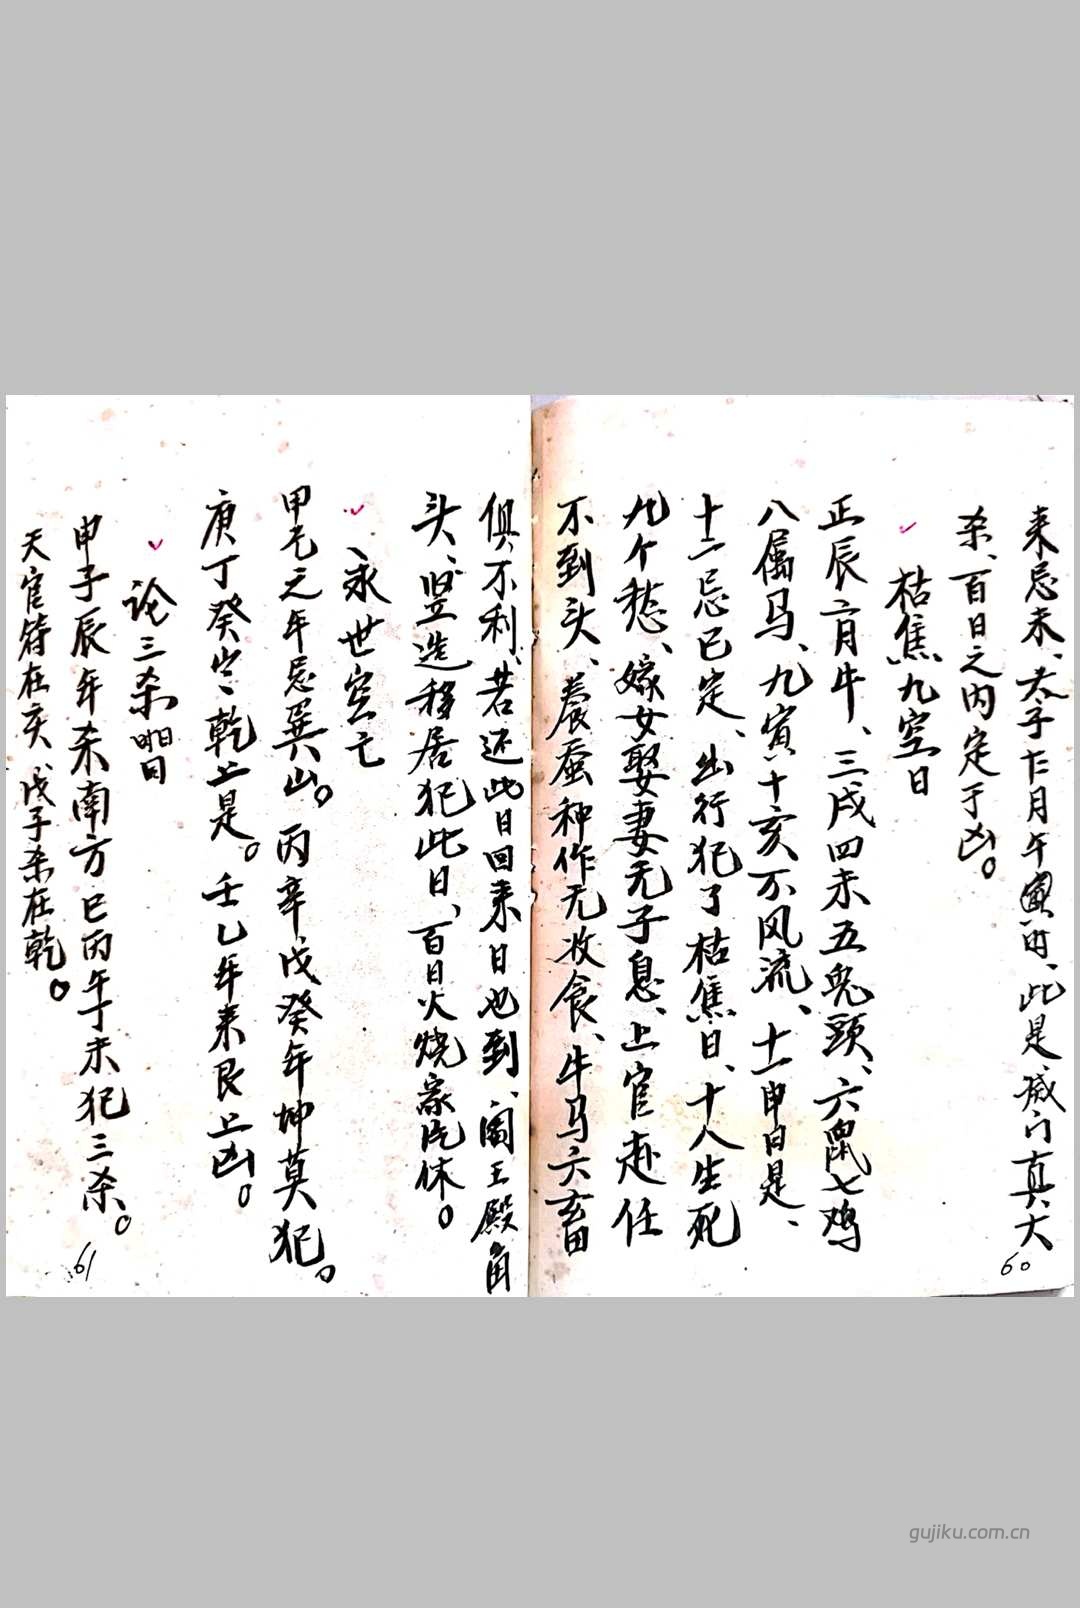 来忌未、太子上月午酉、此是灭门真大
杀、百日之内定于凶。
枯焦九空日
正辰二月牛、三戌四未五兔头、六鼠七鸡
八属马、九寅十亥不风流、十一申日是、
十二忌巳定、出行犯了枯焦日、十人生死
九个愁、嫁女娶妻无子息、上官赴任
不到头、养蚕种作无收食、牛马六畜
60
俱不利、若还此日回来日也到、阎王殿角
头、竖造移居犯此日、百日火烧家沉休。
永世空亡
甲己之年忌巽山。丙辛、戊癸年坤莫犯。
庚丁癸岁、乾上是。壬乙年来艮上凶。
论三杀日
申子辰年杀南方巳丙午丁未犯三杀。
天官符在亥、戊子杀在乾。
61
gujiku.com.cn